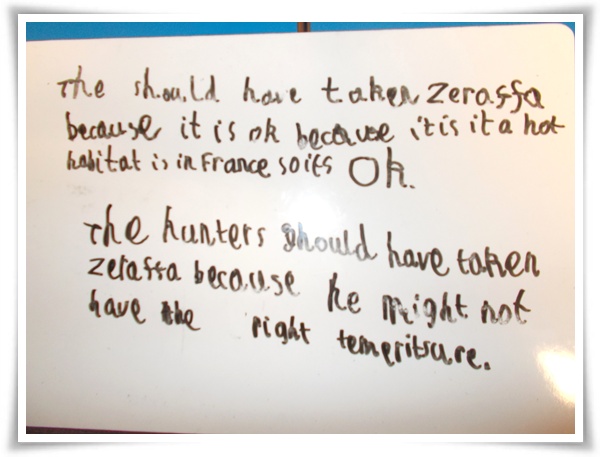 The should have taken Zeraffa
because it is ok because it is it a hot
habitat is in France so its Ok.
The hunters should have taken
Zeraffa because he might not
have the right temeritsure.